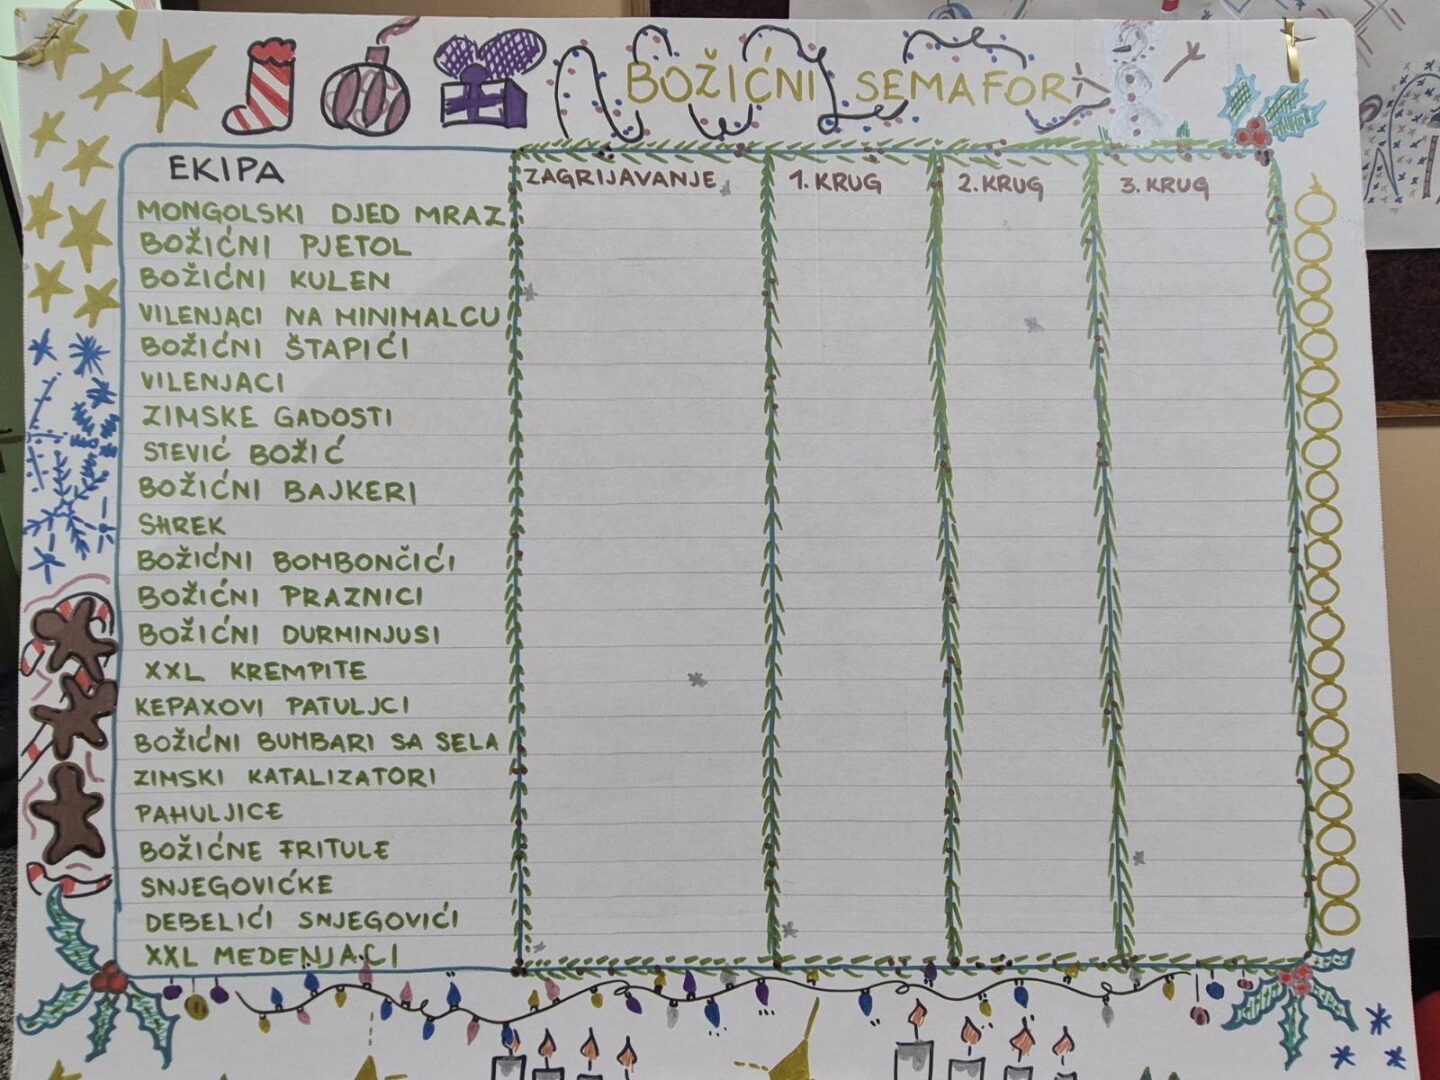 BOŽIĆNI SEMAFOR
EKIPA ZAGRIJAVANJE 1. KRUG 2. KRUG 3. KRUG
MONGOLSKI DJED MRAZ
BOŽIĆNI PJETOL
BOŽIĆNI KULEN
VILENJACI NA MINIMALCU
BOŽIĆNI ŠTAPIĆI
VILENJACI
ZIMSKE GADOSTI
STEVIĆ BOŽIĆ
BOŽIĆNI BAJKERI
SHREK
BOŽIĆNI BOMBONČIĆI
BOŽIĆNI PRAZNICI
BOŽIĆNI DURMINJUSI
XXL KREMPITE
KEPAXOVI PATULJCI
BOŽIĆNI BUMBARI SA SELA
ZIMSKI KATALIZATORI
PAHULJICE
BOŽIĆNE FRITULE
SNJEGOVIĆKE
DEBELIĆI SNJEGOVIĆI
XXL MEDENJACI